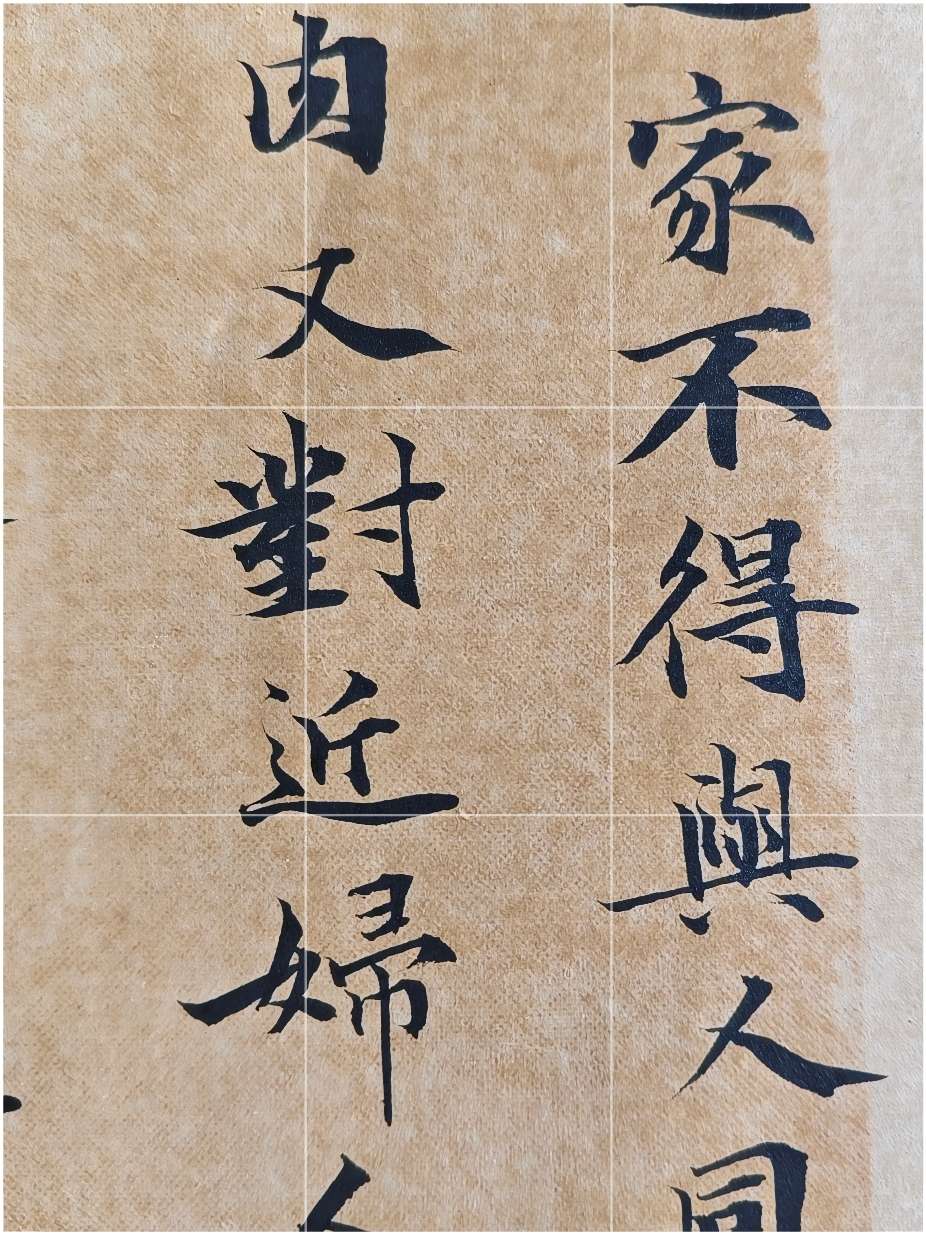 家不得與人同
肉又對近婦